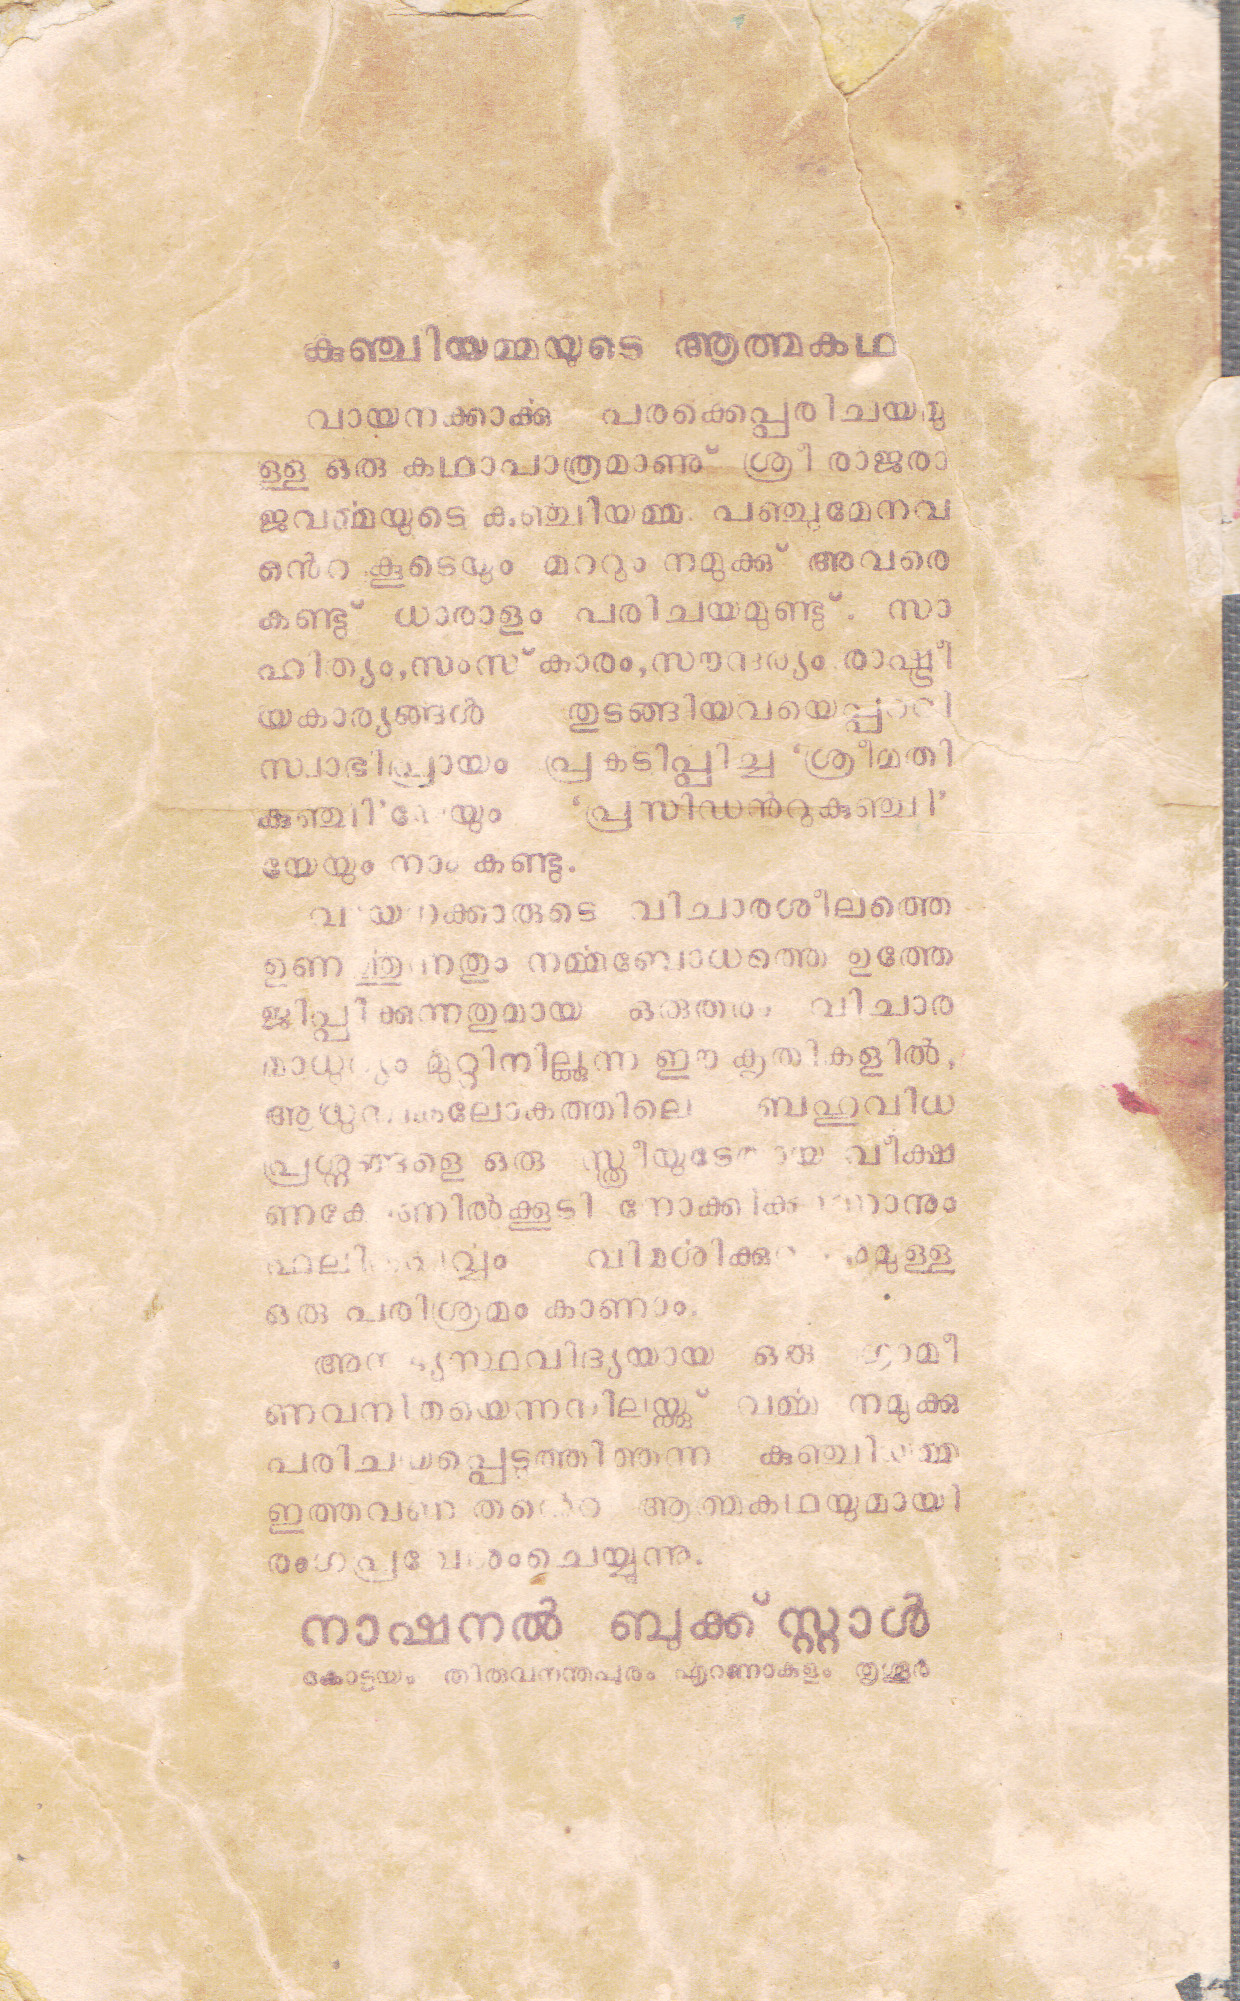 കുഞ്ചിയമ്മയുടെ ആത്മകഥ
വായനക്കാൎക്കു പരക്കെപ്പരിചയമു
ള്ള ഒരു കഥാപാത്രമാണു് ശ്രീ രാജരാ
ജവൎമ്മയുടെ കുഞ്ചിയമ്മ. പഞ്ചുമേനവ
ന്റെ കൂടെയും മററും നമുക്കു് അവരെ
കണ്ടു് ധാരാളം പരിചയമുണ്ടു്. സാ
ഹിത്യം, സംസ്കാരം, സൗന്ദര്യം രാഷ്ട്രീ
യകാര്യങ്ങൾ തുടങ്ങിയവയെപ്പററി
സ്വാഭിപ്രായം പ്രകടിപ്പിച്ച ‘ശ്രീമതി
കുഞ്ചി’യേയും ‘പ്രസിഡൻറുകുഞ്ചി’
യേയും നാം കണ്ടു.
വായനക്കാരുടെ വിചാരശീലത്തെ
ഉണൎത്തുന്നതും നൎമ്മബോധത്തെ ഉത്തേ
ജിപ്പിക്കുന്നതുമായ ഒരുതരം വിചാര
മാധുര്യം മുറ്റിനില്ക്കുന്ന ഈ കൃതികളിൽ,
ആധുനികലോകത്തിലെ ബഹുവിധ
പ്രശ്നങ്ങളെ ഒരു സ്ത്രീയുടേതായ വീക്ഷ
ണകോണിൽക്കൂടി നോക്കിക്കാണാനും
ഫലിതപൂൎവ്വം വിമൎശിക്കുവാനുമുള്ള
ഒരു പരിശ്രമം കാണാം.
അനഭ്യസ്ഥവിദ്യയായ ഒരു ഗ്രാമീ
ണവനിതയെന്നനിലയ്ക്കു് വൎമ്മ നമുക്കു
പരിചയപ്പെടുത്തിത്തന്ന കുഞ്ചിയമ്മ
ഇത്തവണ തന്റെ ആത്മകഥയുമായി
രംഗപ്രവേശംചെയ്യുന്നു.
നാഷനൽ ബുക്ക് സ്റ്റാൾ
കോട്ടയം തിരുവനന്തപുരം എറണാകുളം തൃശ്ശൂർ